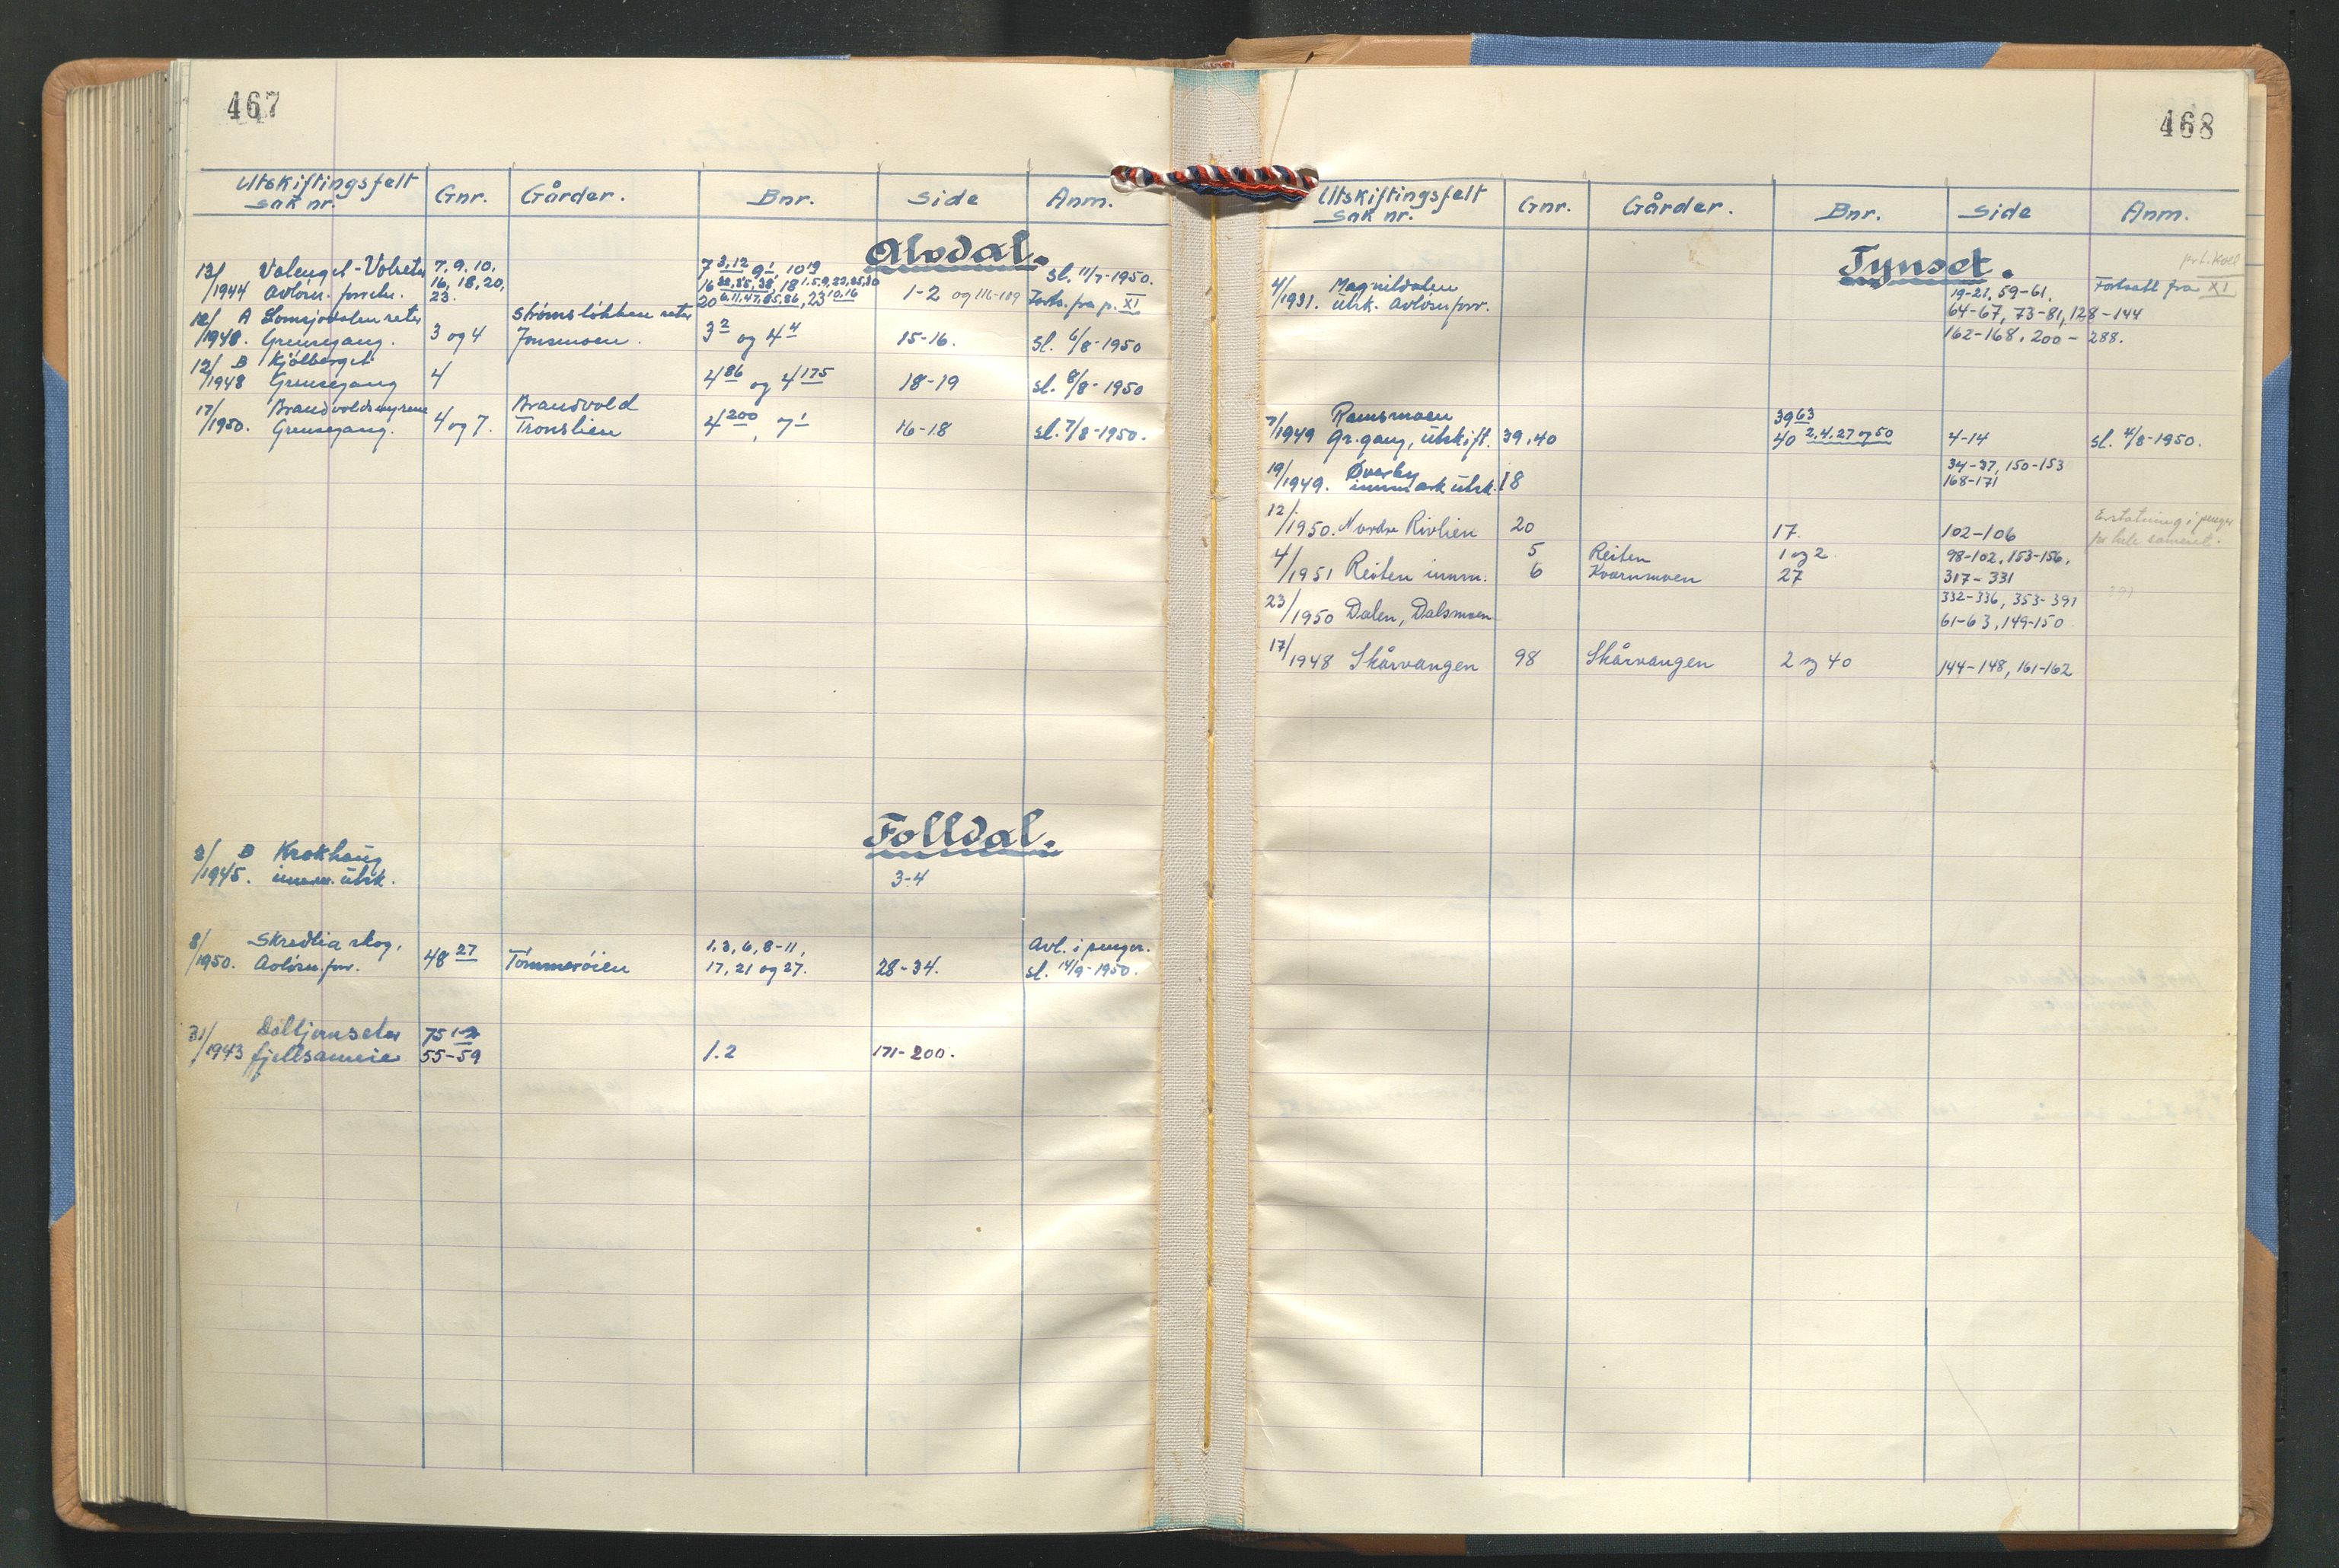 467
Utskiftingsfelt
sak nr. Gnr. Gårder. Bnr. Side Anm.
Alvdal.
13/1944 Volenget-Volseter 7, 9, 10, 16, 18, 20, 23. 7 3,12 9 1, 10 19
1-2 og 116-119 sl. 11/7-1950.
Forts. fra p. XI
12/1948. A Lomsjødalen seter
Grensegang. 3 og 4 Strømsløkken seter
Jonsmoen. 3 2 og 4 4 15-16. sl. 6/8-1950
12/1948 B Kjølberget
Grensegang 4 4 86 og 4 175 18-19 sl. 8/8-1950
17/1950. Brandvoldsmyrene
Grensegang. 4 og 7. Brandvold
Tronslien 4 200, 7 1 16-18 sl. 7/8-1950.
Folldal.
B Krokhaug
/1945. innm. utsk. 3-4
8/1950. Skredlia skog.
Avløsn. forr. 48 27 Tømmerøien 1, 3, 6, 8-11,
17, 21 og 27. 28-34. Avl. i penger.
sl. 14/9-1950.
31/1943 Døltjernseter
fjellsameie 75
55-59 1.2 171-200.
468
Utskiftingsfelt
sak nr. Gnr. Gårder. Bnr. Side Anm.
Tynset.
4/1931. Magnildalen
utsk. Avløsn. forr. 19-21, 59-61. Fortsatt fra XI
64-67, 73-81, 128-144
162-168, 200-288.
7/1949 Ramsmoen
Gr.gang, utskift. 39, 40 39 63
40 2, 4, 27 og 50 4-14 sl. 4/8-1950.
19/1949. Øverby
innmark utsk. 18 34-37, 150-153
168-171
12/1950. Nordre Rivlien 20 17. 102-106 Erstatning i penger
4/1951 Reiten innm. 5 Reiten 1 og 2. 98-102, 153-156,
6 Kvernmoen 27 317-331
23/1950 Dalen, Dalsmoen 332-336, 353-391
61-63, 149-150
17/1948 Skårvangen 98 Skårvangen 2 og 40 144-148, 161-162